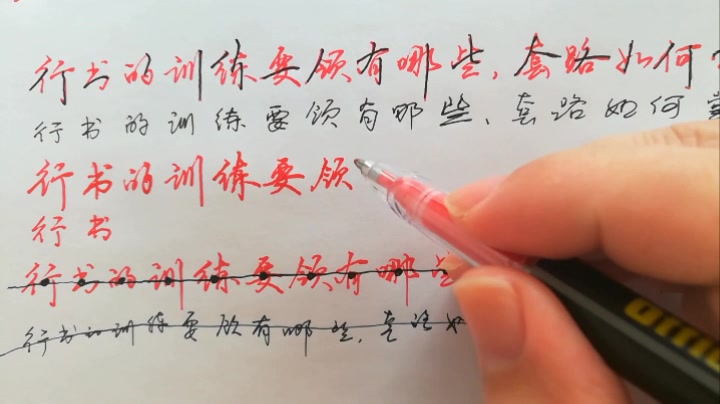 行书的训练要领有哪些,套路如何
行书的训练要领有哪些、套路如何掌
行书的训练要领
行书
行书的训练要领有哪些
行书的训练要领有哪些,套路如